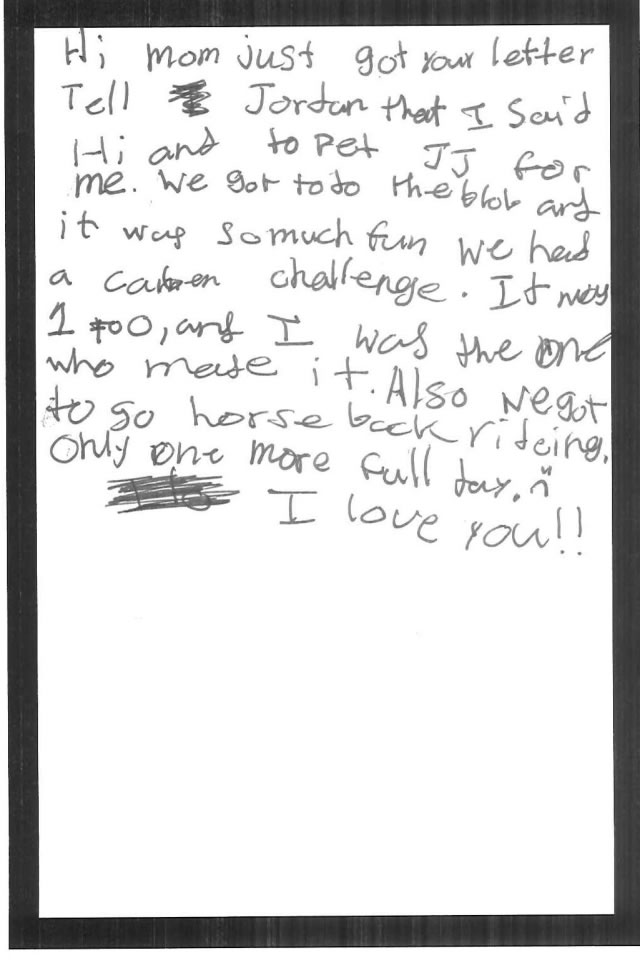 Hi mom just got your letter
Tell Jordan that I Said
Hi and to pet JJ for
me. We got to do the blob and
it was so much fun we had
a challenge. It was
1 to 0, and I was the one
who made it. Also we got
to go horse back rideing.
Only one more full day.
I love you!!